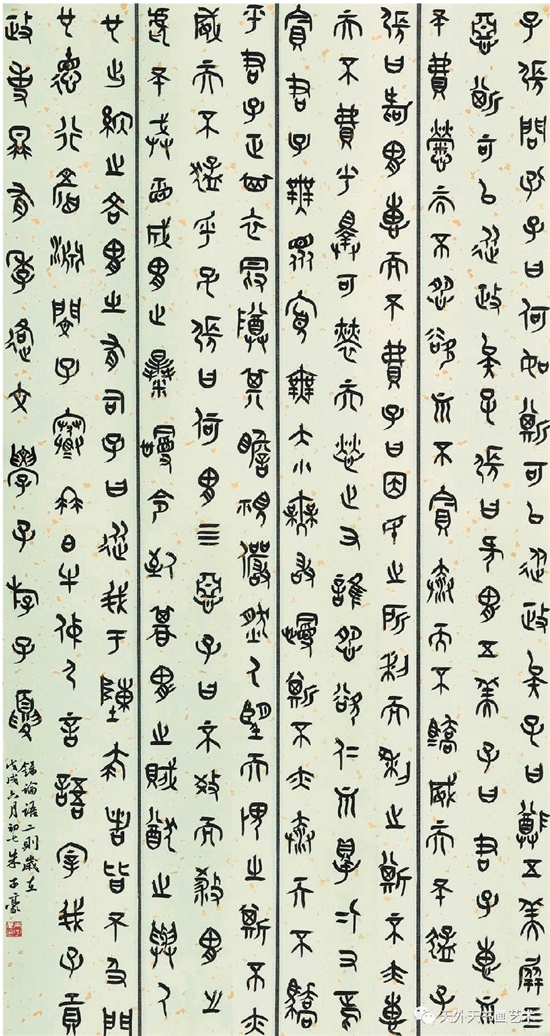 子張問孔子曰何如斯可以從政矣子曰尊五美屏四
惡斯可以從政矣子張曰何謂五美子曰君子惠而
不費勞而不怨欲而不貪泰而不驕威而不猛子
張曰何謂惠而不費子曰因民之所利而利之斯不亦惠
而不費乎擇可勞而勞之又誰怨欲仁而得仁又焉
貪君子無眾寡無大小無敢慢斯不亦泰而不驕
乎君子正其衣冠尊其瞻視儼然人望而畏之斯不亦
威而不猛乎子張曰何謂四惡子曰不教而殺謂之
虐不戒視成謂之暴慢令致期謂之賊猶之與人
也出納之吝謂之有司子曰從我于陳蔡者皆不及門
也德行顏淵閔子騫冉白牛仲弓言語宰我子貢
政事冉有季路文學子游子夏
錄論語二則歲在
戊戌六月初七朱
天外天书画艺术